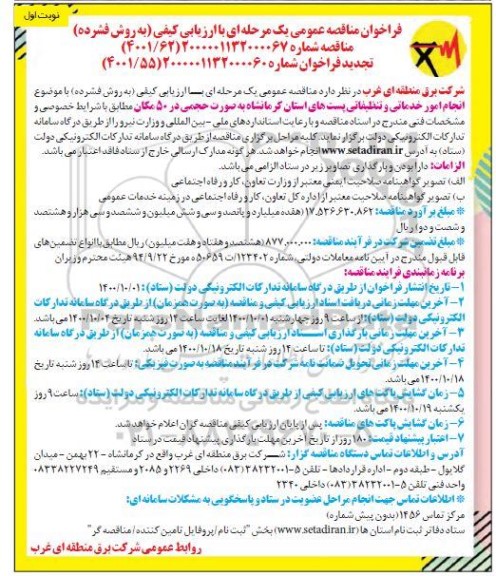 نوبت اول
فراخوان مناقصه عمومی یک مرحله ای با ارزیابی کیفی (به روش فشرده)
مناقصه شماره ۲۰۰۰۰۰۱۱۳۲۰۰۰۰۶۷ (۴۰۰۱/۶۲)
تجدید فراخوان شماره ۲۰۰۰۰۰۱۱۳۲۰۰۰۰۶۰ (۴۰۰۱/۵۵)
شرکت برق منطقه ای غرب در نظر دارد مناقصه عمومی یک مرحله ای با ارزیابی کیفی (به روش فشرده) با موضوع
انجام امور خدماتی و تنظیفاتی پست های استان کرمانشاه به صورت حجمی در ۵۰ مکان مطابق با شرایط خصوصی و
مشخصات فنی مندرج در اسناد مناقصه و با رعایت استانداردهای ملی - بین المللی و وزارت نیرو را از طریق درگاه سامانه
تدارکات الکترونیکی دولت برگزار نماید. کلیه مراحل برگزاری مناقصه از طریق درگاه سامانه تدارکات الکترونیکی دولت
(ستاد) به آدرس www.setadiran.ir انجام خواهد شد. هر گونه مدارک ارسالی خارج از ستاد فاقد اعتبار می باشد.
الزامات: دارا بودن و بارگذاری تصاویر زیر در ستاد الزامی می باشد.
الف) تصویر گواهینامه صلاحیت ایمنی معتبر از وزارت تعاون، کار و رفاه اجتماعی
ب) تصویر گواهینامه صلاحیت معتبر از اداره کل تعاون، کار و رفاه اجتماعی در زمینه خدمات عمومی
* مبلغ برآورد مناقصه: ۱۷.۵۳۶.۶۳۰.۸۶۲ (هفده میلیارد و پانصد و سی و شش میلیون و ششصد و سی هزار و هشتصد
و شصت و دو) ریال
* مبلغ تضمین شرکت در فرآیند مناقصه: ۸۷۷.۰۰۰.۰۰۰ (هشتصد و هفتاد و هفت میلیون) ریال مطابق با انواع تضمین های
قابل قبول مندرج در آیین نامه معاملات دولتی، شماره ۱۲۳۴۰۲/ت۵۰۶۵۹ه مورخ ۹۴/۹/۲۲ هیئت محترم وزیران
برنامه زمانبندی فرایند مناقصه:
۱- تاریخ انتشار فراخوان از طریق درگاه سامانه تدارکات الکترونیکی دولت (ستاد): ۱۴۰۰/۱۰/۰۱
۲- آخرین مهلت زمانی دریافت اسناد ارزیابی کیفی و مناقصه (به صورت همزمان) از طریق درگاه سامانه تدارکات
الکترونیکی دولت (ستاد): از ساعت ۹ روز چهارشنبه ۱۴۰۰/۱۰/۰۱ لغایت ساعت ۱۲ روز شنبه تاریخ ۱۴۰۰/۱۰/۰۴ می باشد.
۳- آخرین مهلت زمانی بارگذاری اسناد ارزیابی کیفی و مناقصه (به صورت همزمان) از طریق درگاه سامانه
تدارکات الکترونیکی دولت (ستاد): تا ساعت ۱۴ روز شنبه تاریخ ۱۴۰۰/۱۰/۱۸ می باشد.
۴- آخرین مهلت زمانی تحویل ضمانت نامه شرکت در فرآیند مناقصه به صورت فیزیکی: تا ساعت ۱۴ روز شنبه تاریخ
۱۴۰۰/۱۰/۱۸ می باشد.
۵- زمان گشایش پاکت های ارزیابی کیفی از طریق درگاه سامانه تدارکات الکترونیکی دولت (ستاد): ساعت ۹ روز
یکشنبه ۱۴۰۰/۱۰/۱۹ می باشد.
۶- زمان گشایش پاکت های مناقصه: پس از پایان ارزیابی کیفی مناقصه گران اعلام خواهد شد.
۷- اعتبار پیشنهاد قیمت: ۱۸۰ روز از تاریخ آخرین مهلت بارگذاری پیشنهاد قیمت در ستاد
آدرس و اطلاعات تماس دستگاه مناقصه گزار: شرکت برق منطقه ای غرب واقع در کرمانشاه - ۲۲ بهمن - میدان
گلایول - طبقه دوم - اداره قراردادها - تلفن ۵-۳۸۲۳۲۰۰۱ (۰۸۳) داخلی ۲۲۶۹ و ۲۰۸۵ و مستقیم ۰۸۳۳۸۲۲۷۲۴۹
واحد فنی تلفن ۵-۳۸۲۳۲۰۰۱ (۰۸۳) داخلی ۲۳۴۰
* اطلاعات تماس جهت انجام مراحل عضویت در ستاد و پاسخگویی به مشکلات سامانه ای:
مرکز تماس ۱۴۵۶ (بدون پیش شماره)
ستاد دفاتر ثبت نام استان ها (www.setadiran.ir) بخش "ثبت نام / پروفایل تامین کننده / مناقصه گر"
روابط عمومی شرکت برق منطقه ای غرب